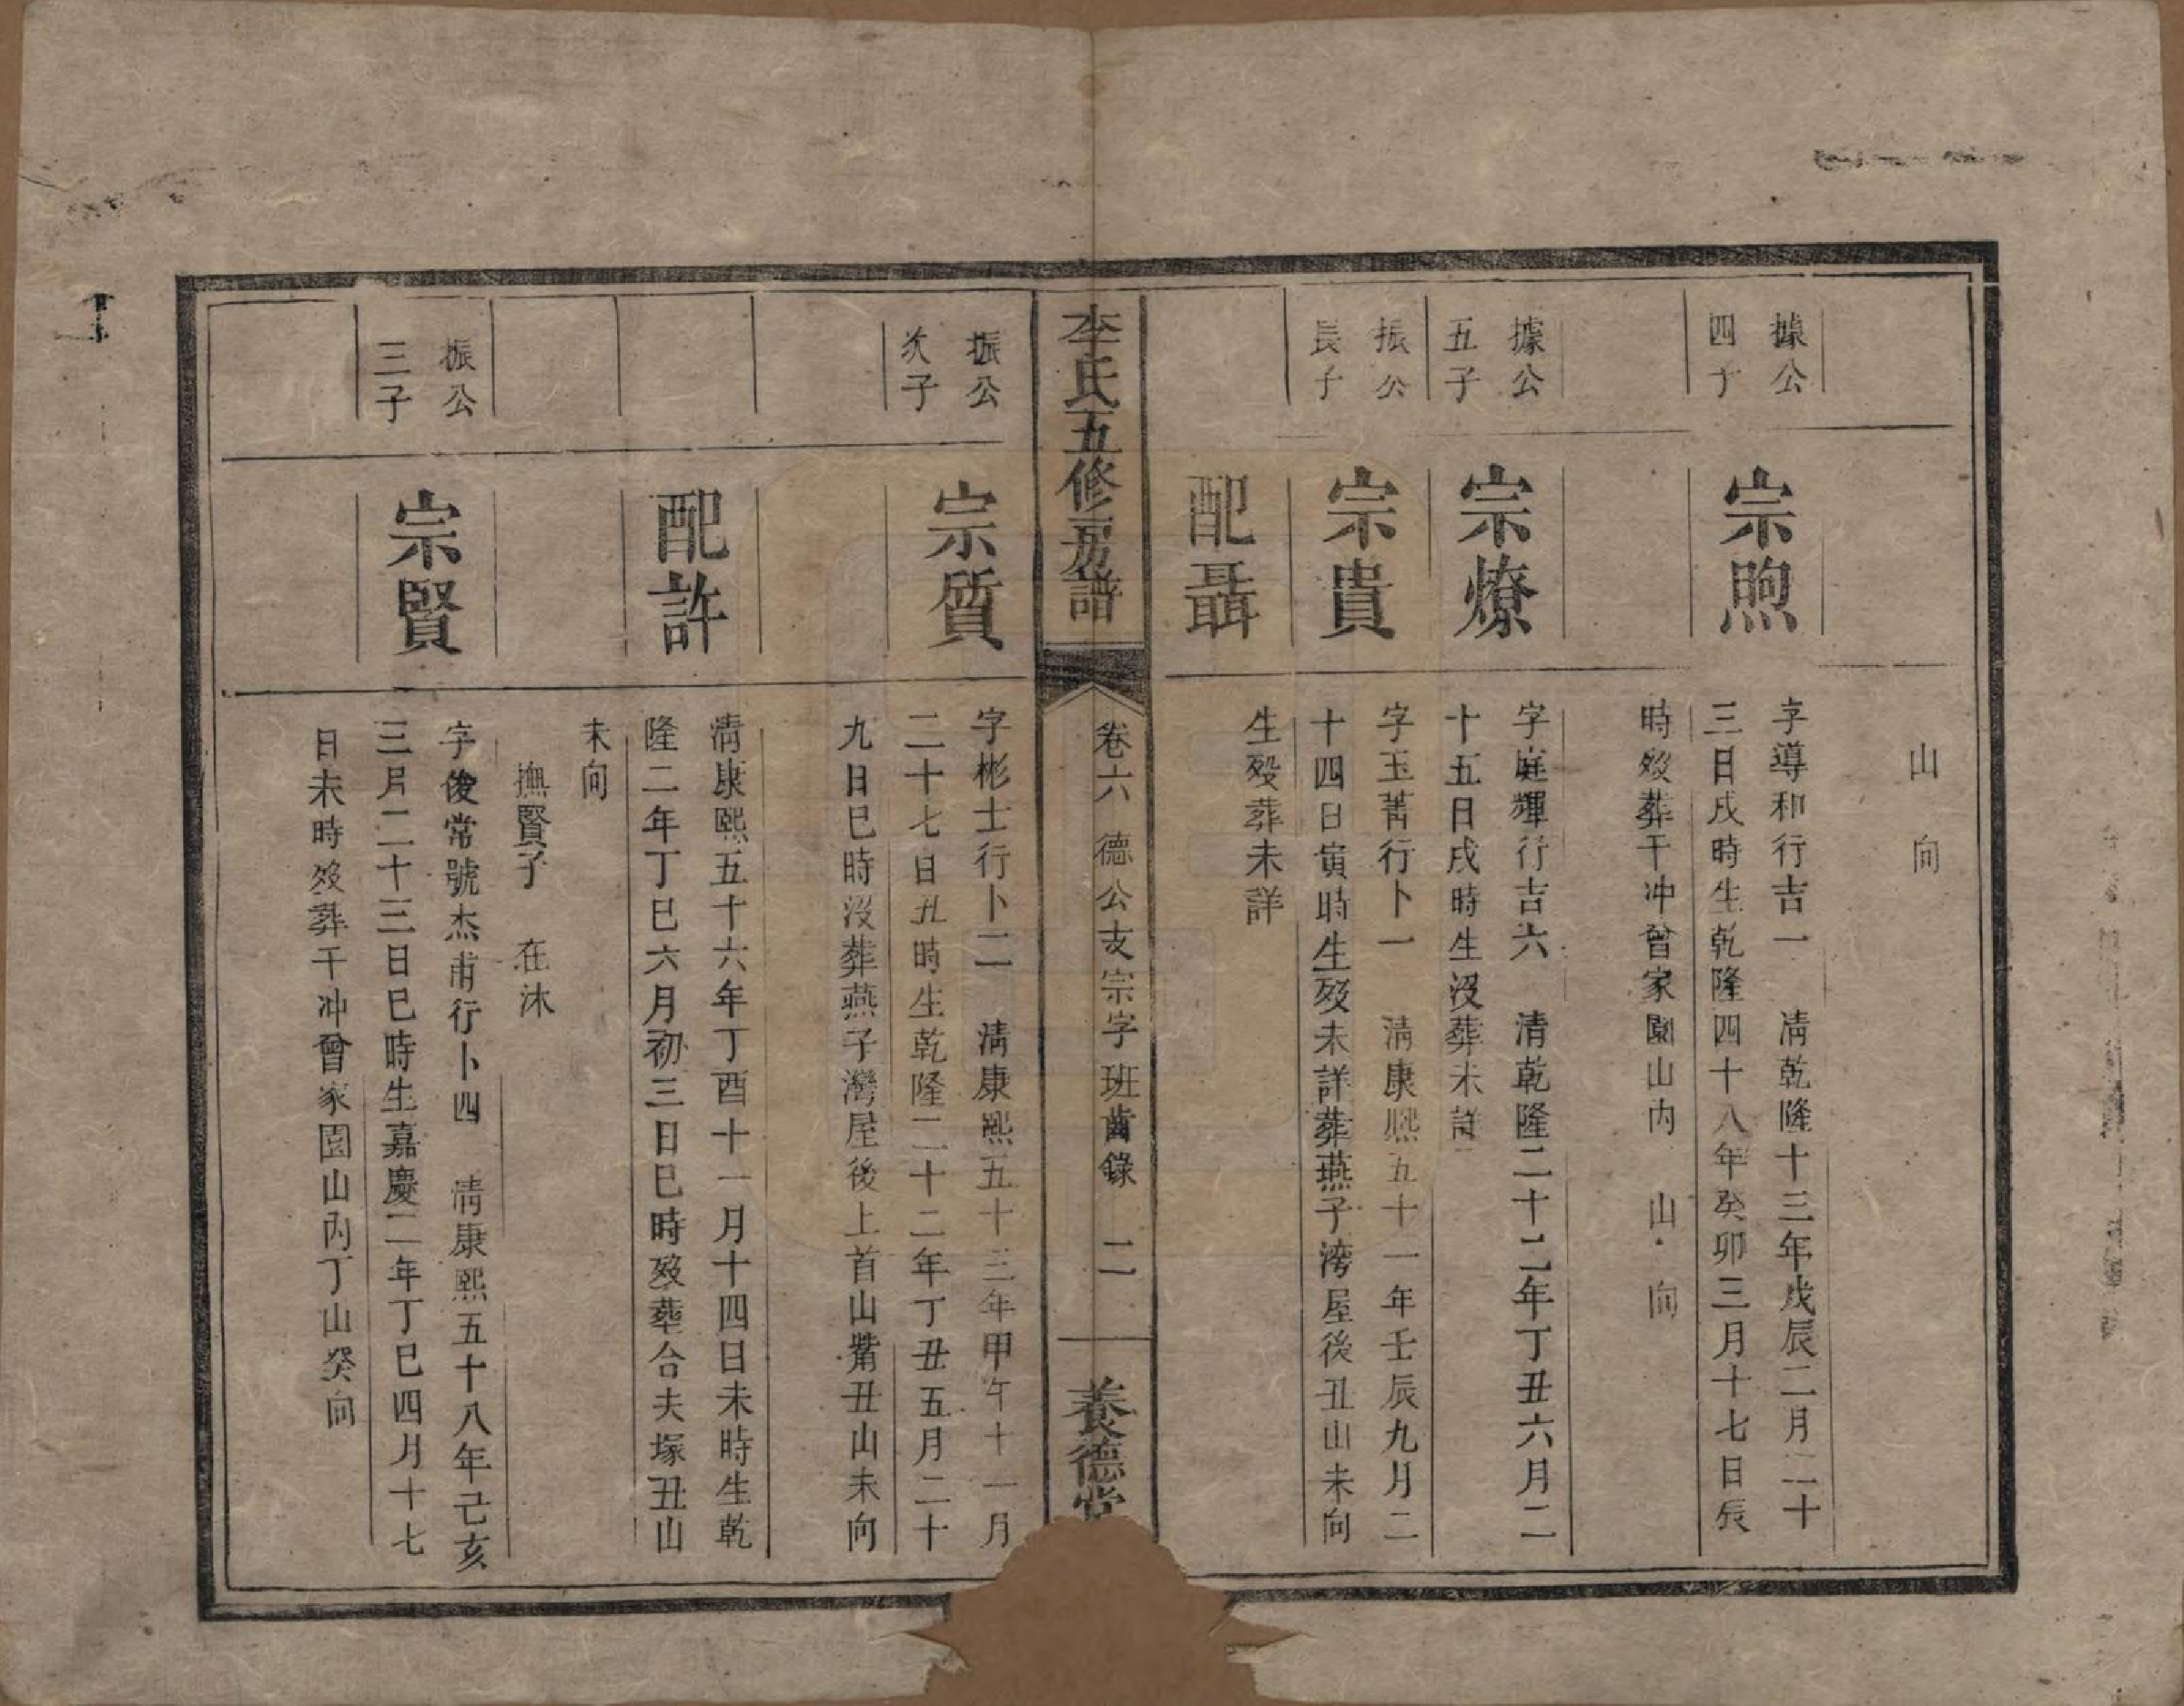 山　向
據公
四子
宗煦
字導和行吉一　清乾隆十三年戊辰二月二十
三日戌時生乾隆四十八年癸卯三月十七日辰
時歿葬干冲曾家園山内　山　向
據公
五子
宗燎
字庭輝行吉六　清乾隆二十二年丁丑六月二
十五日戌時生沒葬未詳
振公
長子
宗貴
字玉菁行卜一　清康熙五十一年壬辰九月二
十四日寅時生歿未詳葬燕子灣屋後丑山未向
配聶
生歿葬未詳
李氏五修房譜
卷六　德公支宗字班齒錄　二
養德堂
振公
次子
宗質
字彬士行卜二　清康熙五十三年甲午十一月
二十七日丑時生乾隆二十二年丁丑五月二十
九日巳時沒葬燕子灣屋後上首山觜丑山未向
配許
清康熙五十六年丁酉十一月十四日未時生乾
隆二年丁巳六月初三日巳時歿葬合夫塚丑山
未向
撫賢子　在沐
振公
三子
宗賢
字俊常號杰甫行卜四　清康熙五十八年己亥
三月二十三日巳時生嘉慶二年丁巳四月十七
日未時歿葬干冲曾家園山内丁山癸向